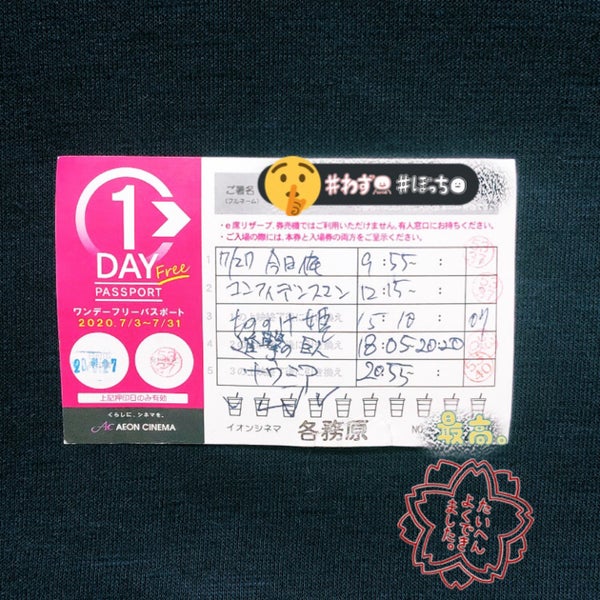 1
DAY
Free
PASSPORT
ワンデーフリーパスポート
2020.7/3~7/31
20. 7.27
上記押印日のみ有効
くらしに、シネマを。
Ac AEON CINEMA
ご署名
(フルネーム)
#わず #ぼっち
・e席リザーブ、券売機ではご利用いただけません。有人窓口にお持ちください。
・ご入場の際には、本券と入場券の両方をご呈示ください。
1 7/27 今日俺 9:55~ :
2 コンフィデンスマン 12:15~ :
もののけ姫 15:10 :
進撃の巨人 18:05-20:20
5 ナウシア 20:55 :
イオンシネマ 各務原 NO
最高。
たいへん
よくできま
ました。